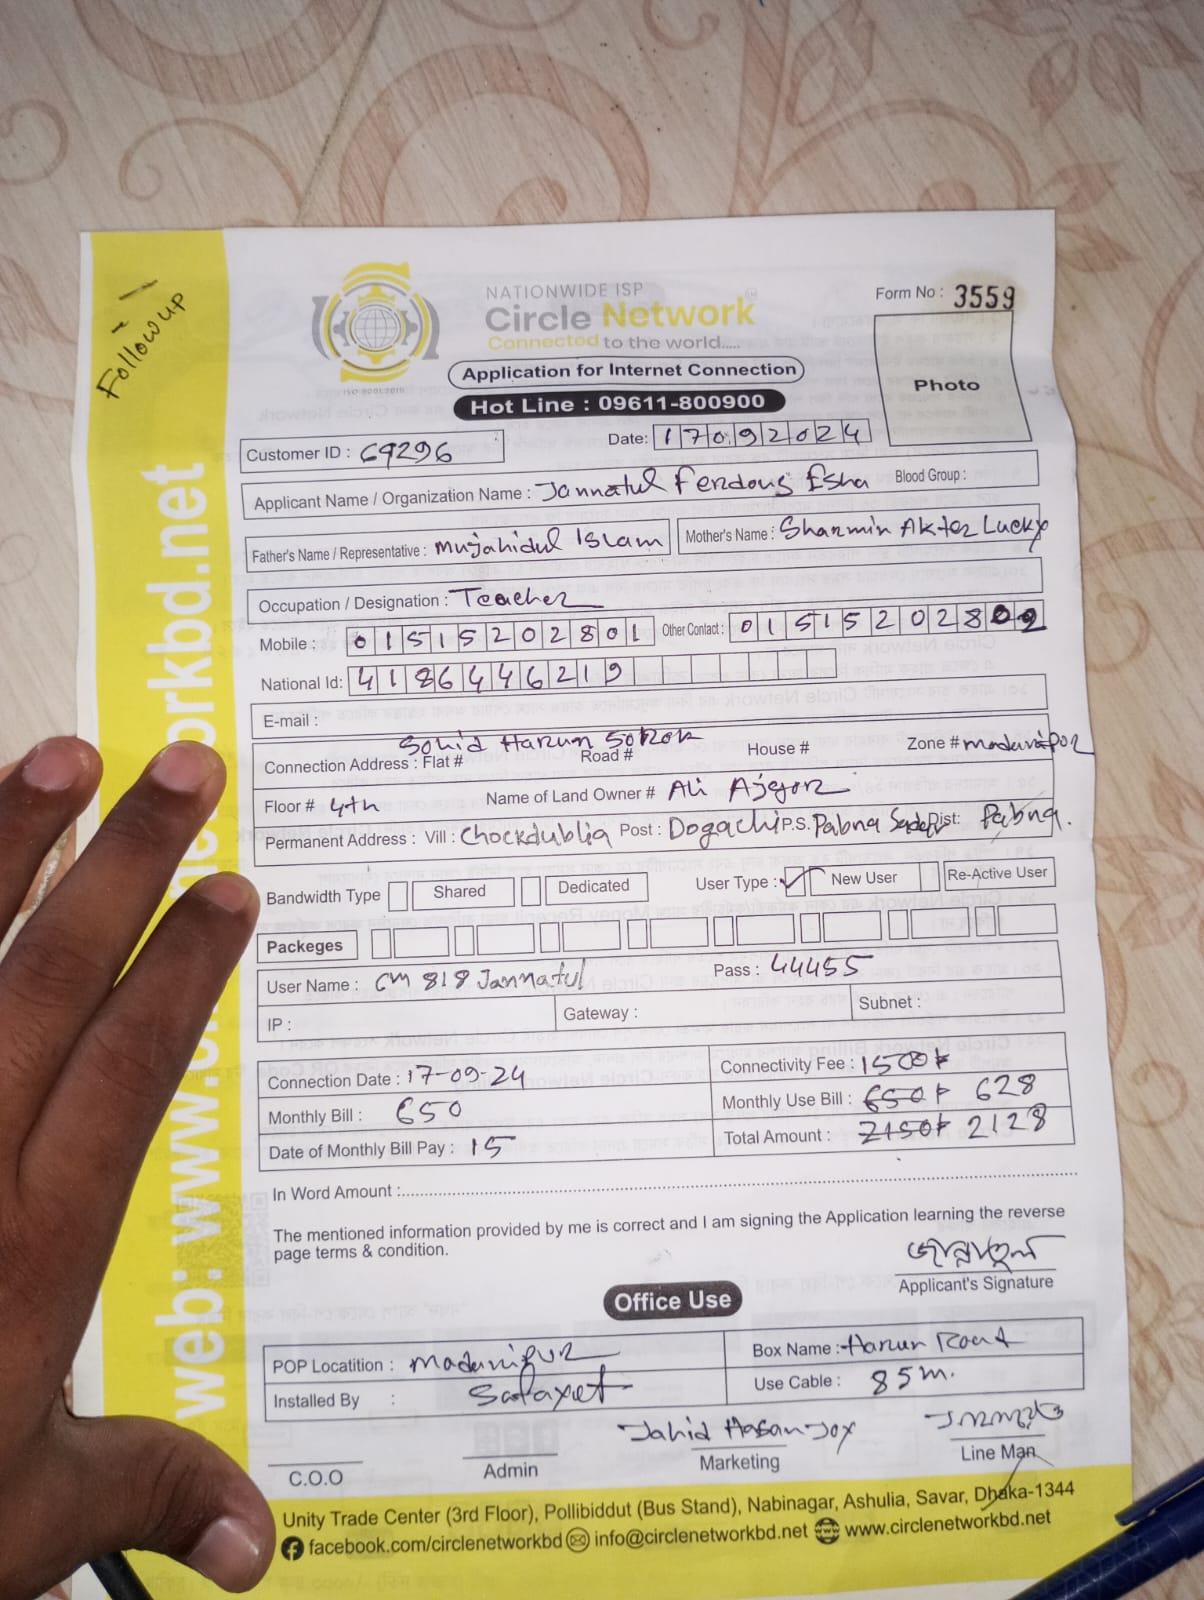 Followup
web: www. orkbd.net
NATIONWIDE ISP
Circle Network
Connected to the world.....
ISO 9001:2015
Form No : 3559
Application for Internet Connection
Photo
Hot Line : 09611-800900
Customer ID : 69296
Date: 17092024
Applicant Name / Organization Name : Jannatul Ferdous Esha Blood Group :
Father's Name / Representative : Mujahidul Islam Mother's Name : Sharmin Akter Lucky
Occupation / Designation : Teacher
Mobile : 01515202801 Other Contact : 01515202802
National Id: 4186446219
E-mail :
Sohid Harun Sorok
Connection Address : Flat # Road # House # Zone # madunipor
Floor # 4th Name of Land Owner # Ali Ajgor
Permanent Address : Vill : Chockdublia Post : Dogachi P.S. Pabna Sadar Dist: Pabna.
Bandwidth Type Shared Dedicated User Type : New User Re-Active User
Packeges
User Name : CM 818 Jannatul Pass : 44455
IP : Gateway : Subnet :
Connection Date : 17-09-24 Connectivity Fee : 1500৳
Monthly Bill : 650 Monthly Use Bill : 650৳ 628
Date of Monthly Bill Pay : 15 Total Amount : 2150৳ 2128
In Word Amount :
The mentioned information provided by me is correct and I am signing the Application learning the reverse
page terms & condition.
Applicant's Signature
Office Use
POP Locatition : Madunipur Box Name : Harun Road
Installed By : Safayet Use Cable : 85m.
Jahid Hasan Joy
C.O.O Admin Marketing Line Man
Unity Trade Center (3rd Floor), Pollibiddut (Bus Stand), Nabinagar, Ashulia, Savar, Dhaka-1344
facebook.com/circlenetworkbd info@circlenetworkbd.net www.circlenetworkbd.net